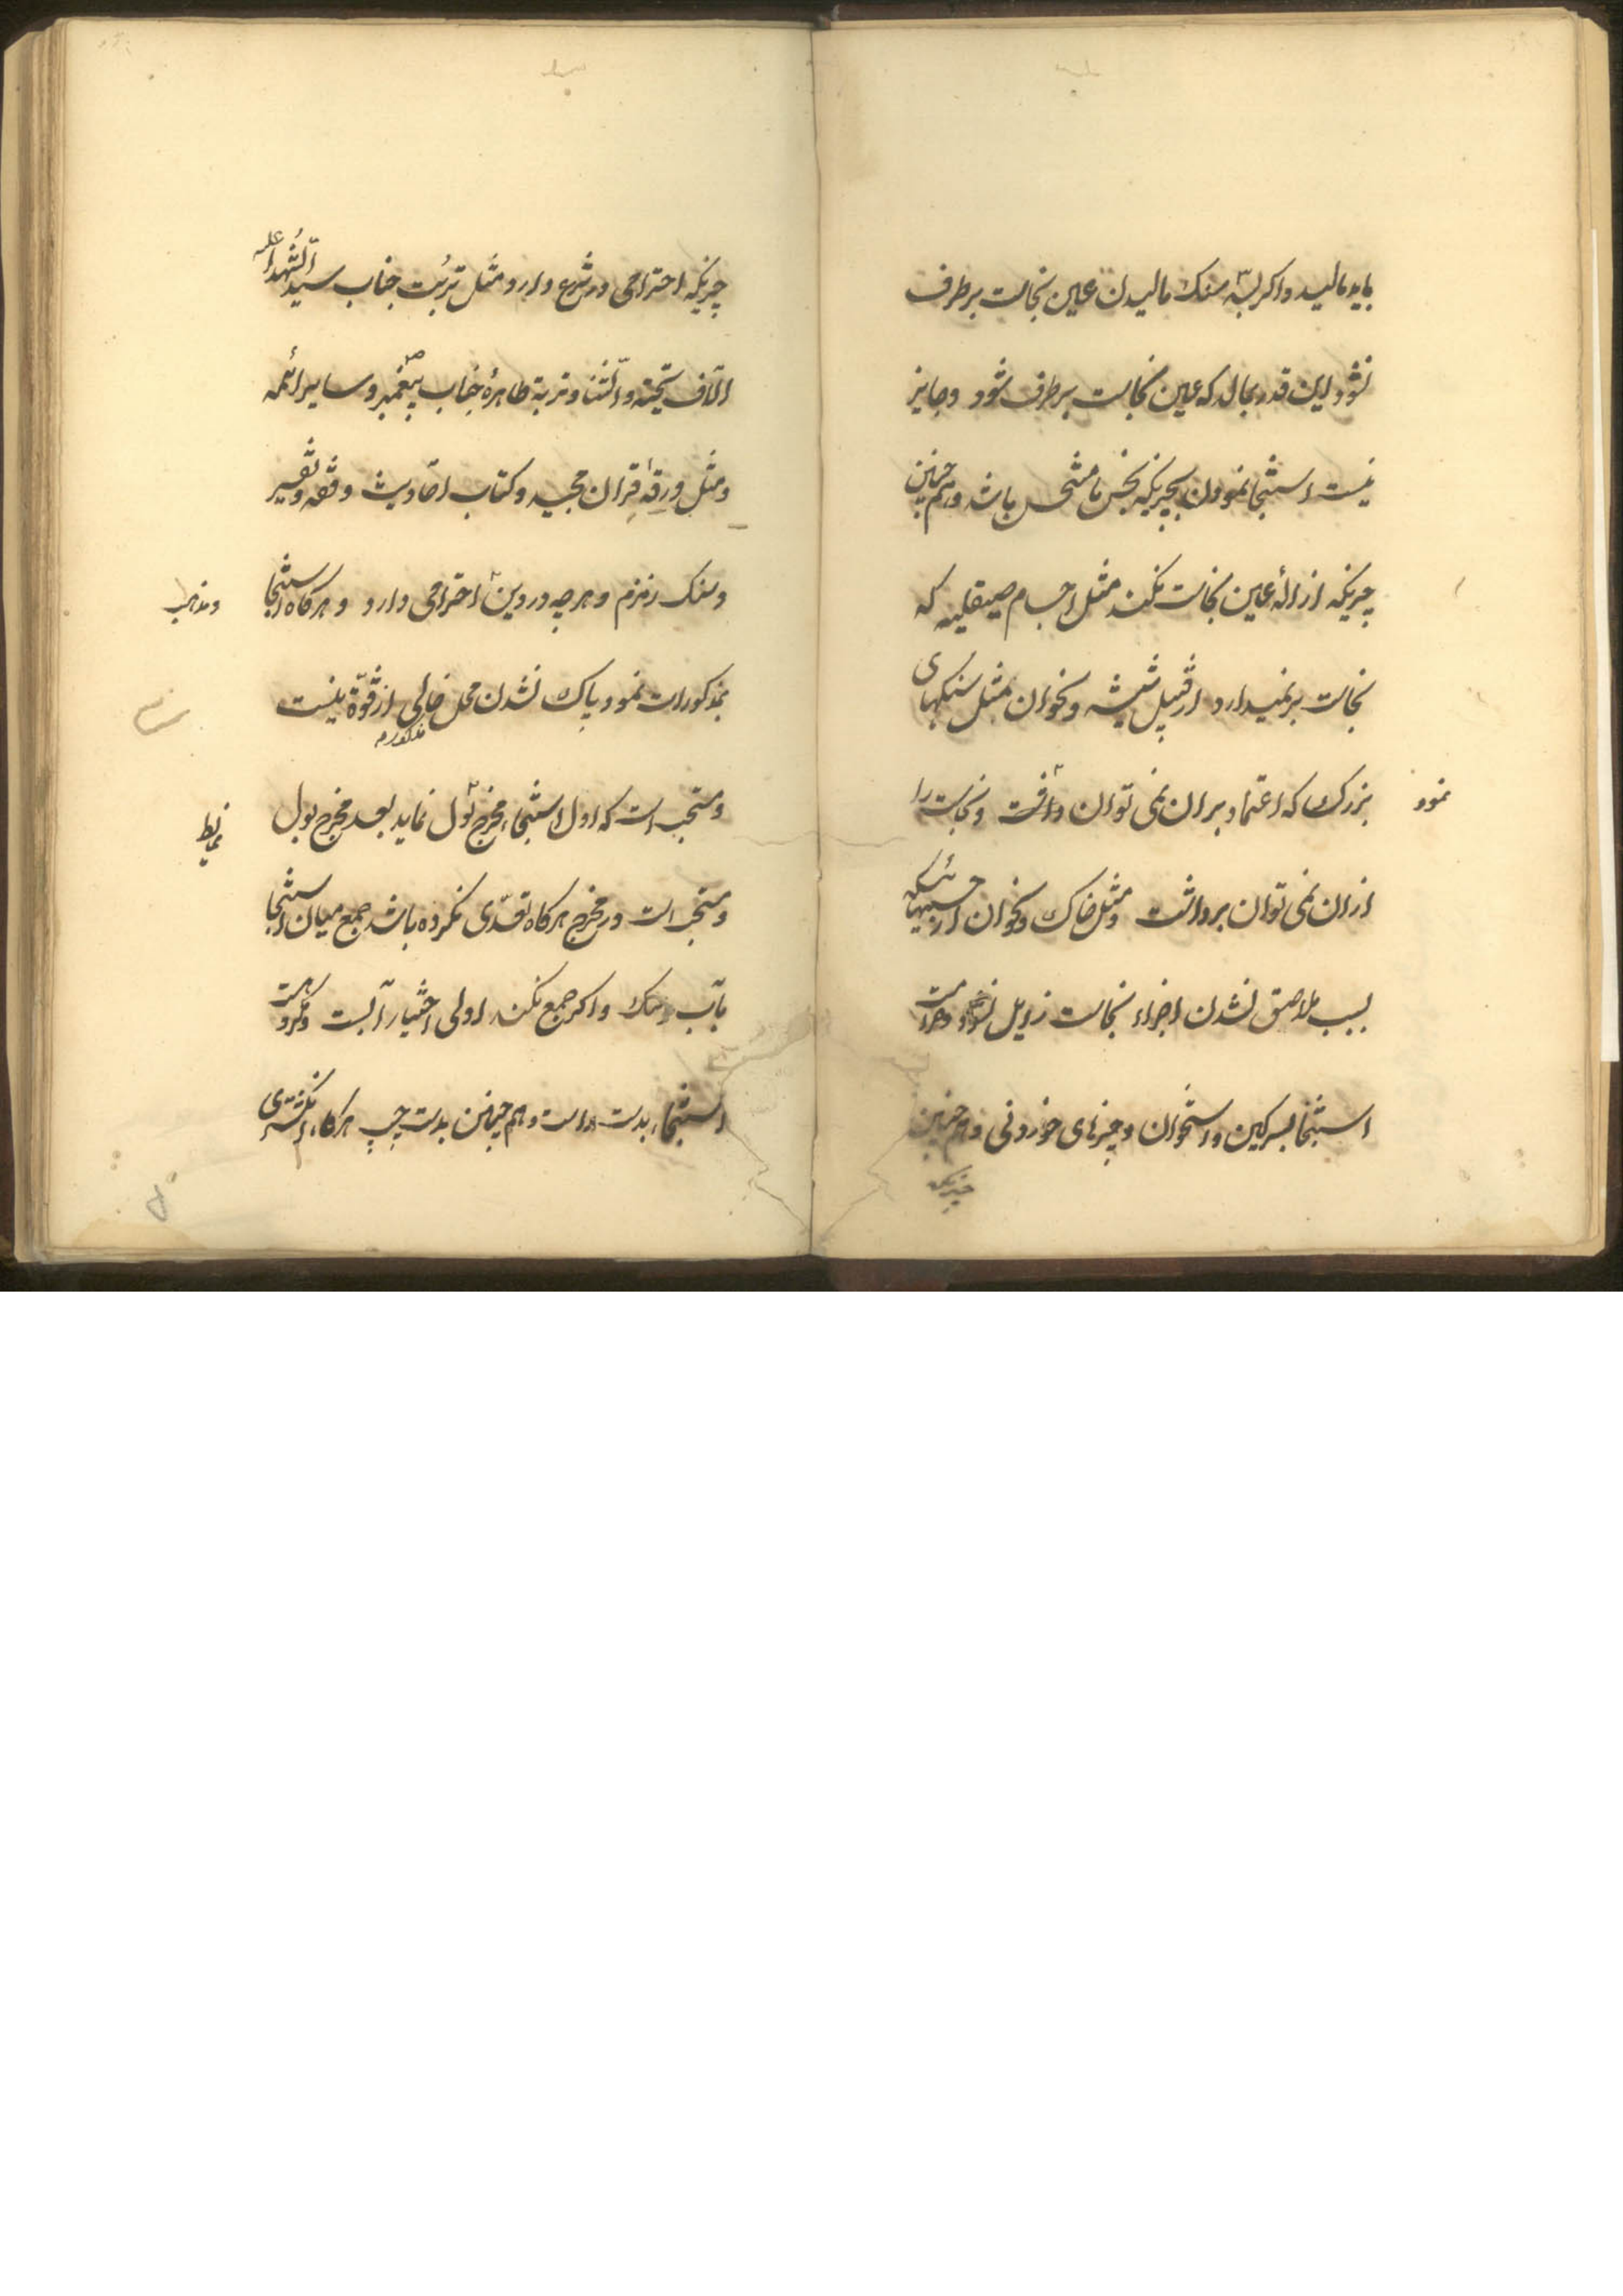 باید مالید و اکر بسّه سنک مالیدن عین نجاست برطرف
نشود این قدر بمالد که عین نجاست برطرف شود و جایز
نیست استنجا نمودن بچیزیکه نجس یا متنجس باشد و هم چنین
چیزیکه ازالهٔ عین نجاست نکند مثل اجسام صیقلیه که
نجاست برنمیدارد از قبیل شیشه و نحو ان و مثل سنکهای
بزرک که اعتماد بران نمی توان داشت و نجاست را
نمود
ازان نمی توان برداشت و مثل خاک و نحو ان از چیزهائیکه
بسبب ملاصق نشدن اجزاء نجاست زایل نشود و حرامست
استنجا بسرکین و استخوان و چیزهای خوردنی و هم چنین
چیزیکه
چیزیکه احترامی در شرع دارد مثل تربت جناب سید الشهداء علیه
الآف التحیّة و الثنا و تربة طاهرهٔ جناب پیغمبر ص و سایر ائمه
و مثل ورقهٔ قران مجید و کتاب احادیث و فقه و تفسیر
و سنک زمزم و هرچه در دین احترامی دارد و هرکاه استنجا
بمذکورات نمود پاک نشدن محل خالی از قوّة نیست
مذکوره
و مستحب است که اول استنجاء مخرج بول نماید بعد مخرج بول
و مستحب است در مخرج هرکاه تعدّی نکرده باشد جمع میان استنجا
بآب و سنک و اکر جمع نکند اولی اختیار آبست و مکروهست
استنجاء بدست راست و هم چنین بدست چپ هرکاه انکشتری